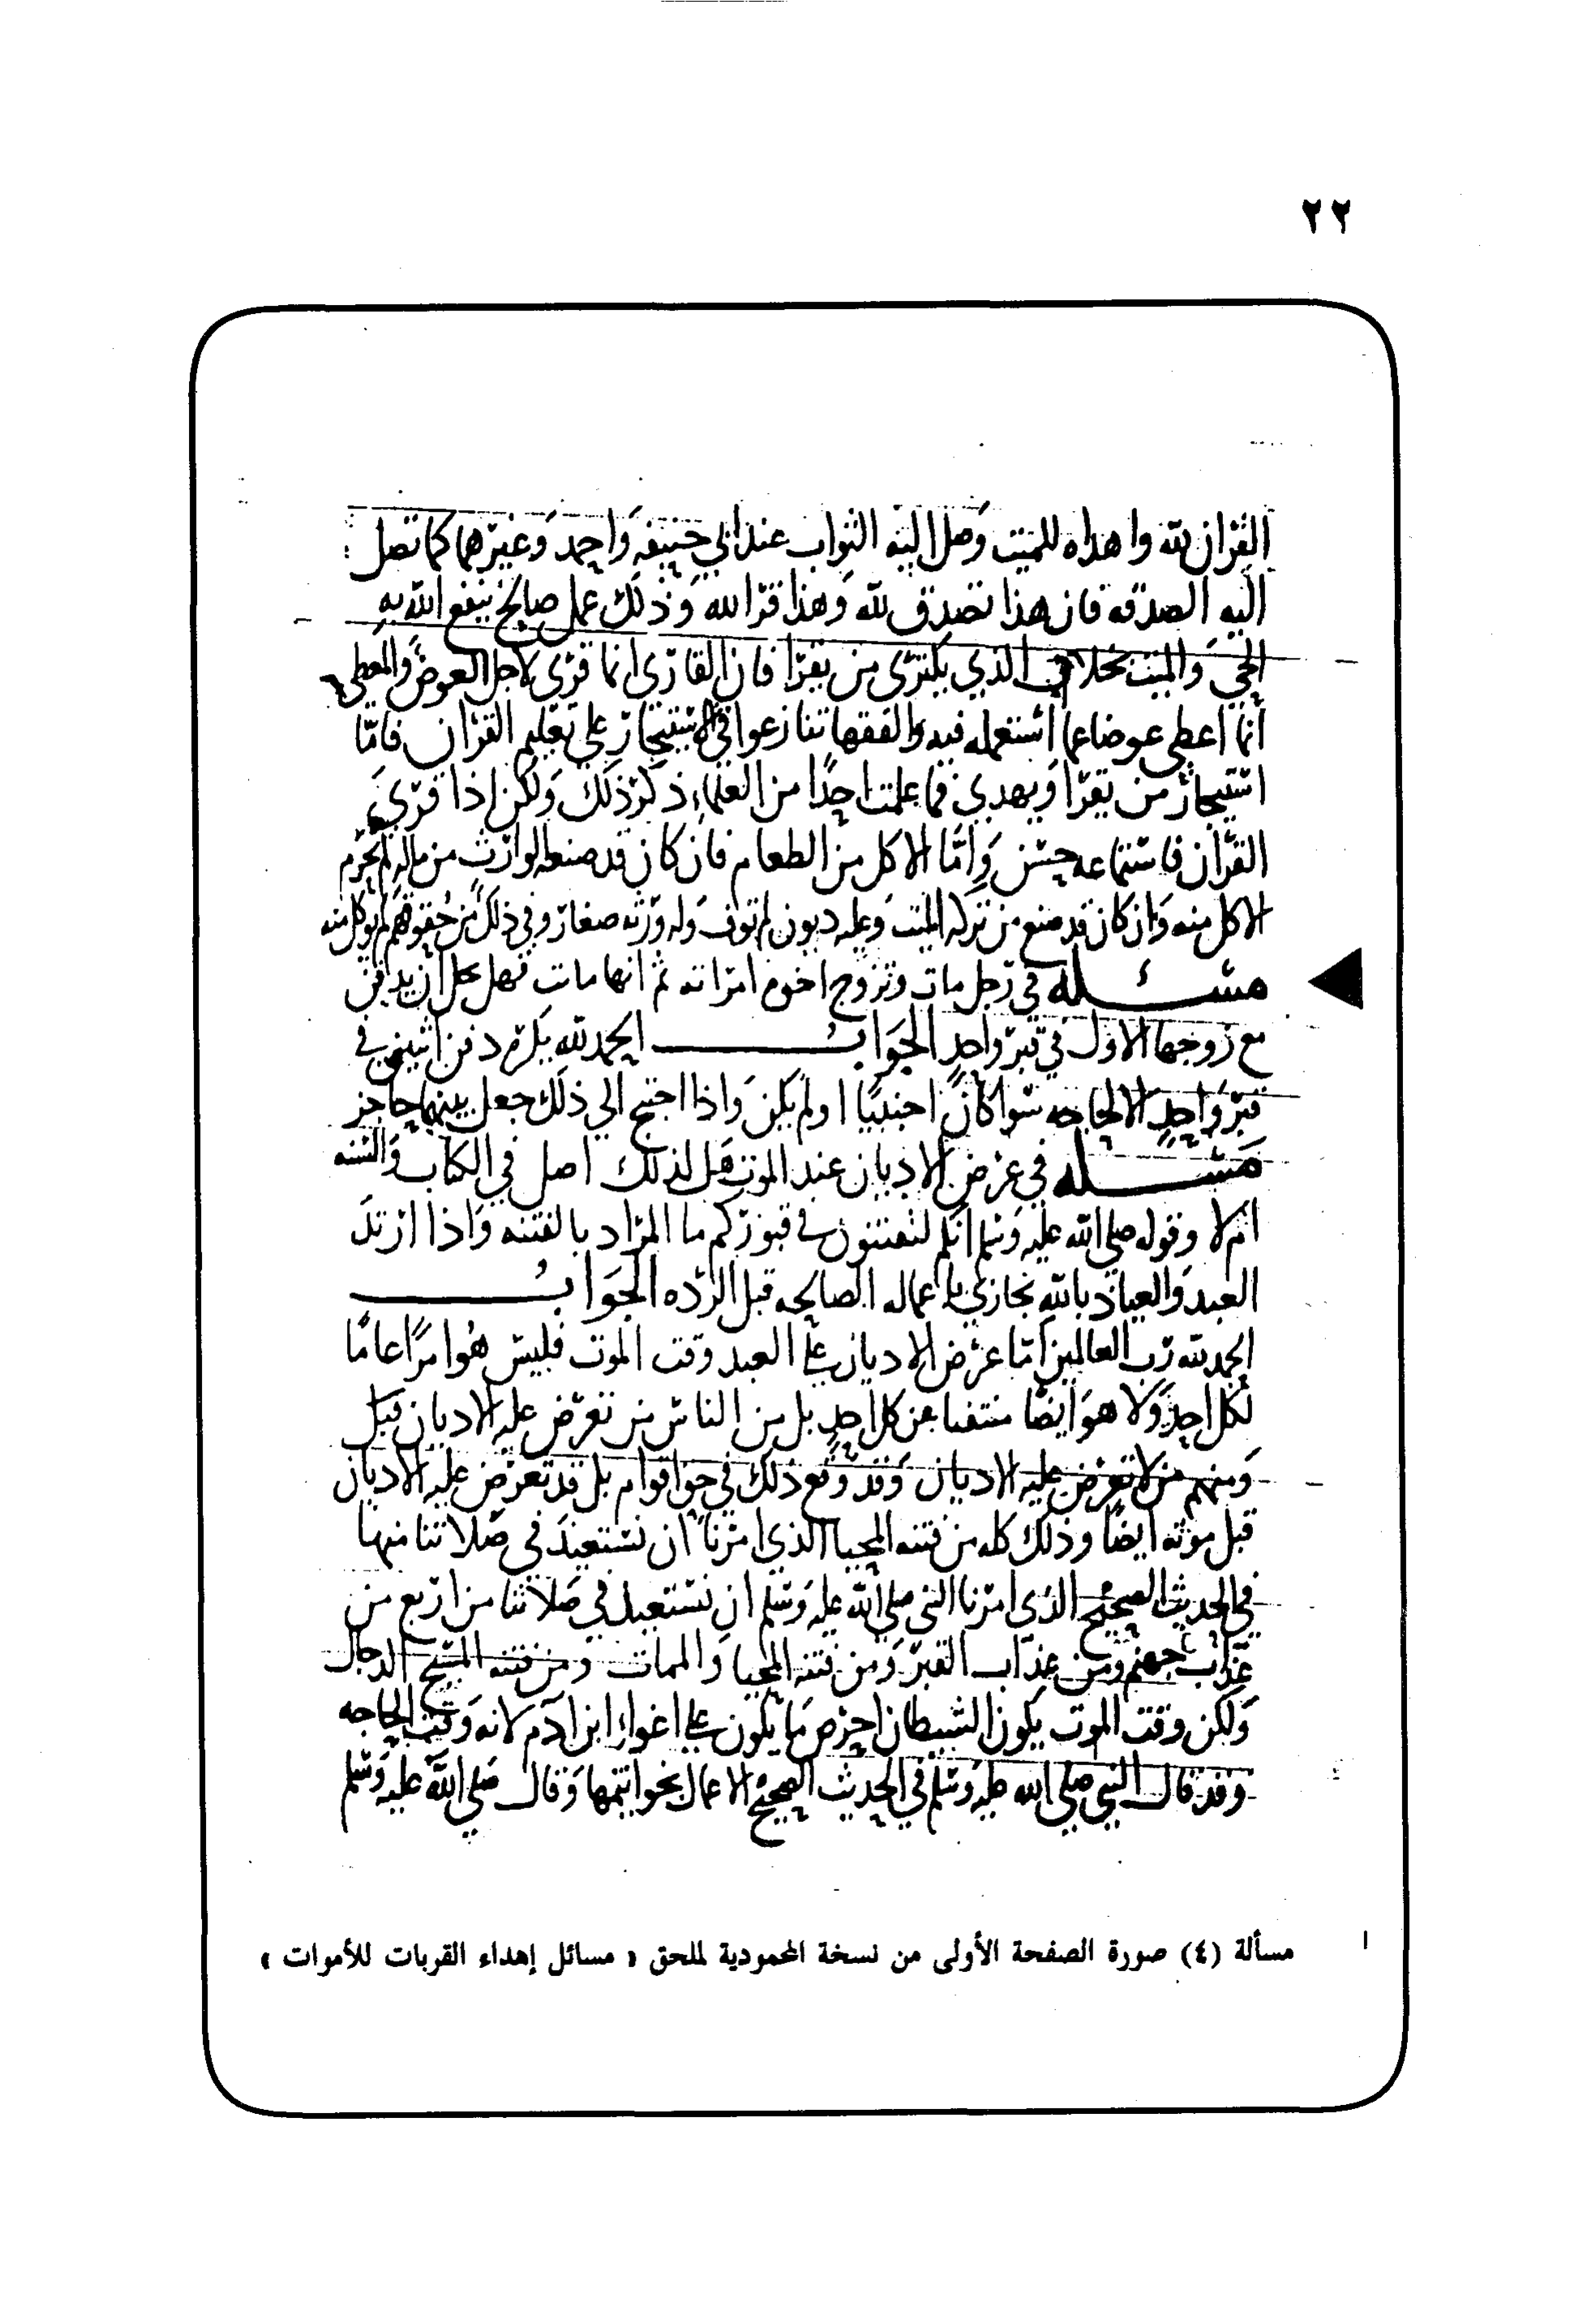 ٢٢
القران لله واهداه للميت وصل اليه الثواب عند ابي حنيفه واحمد وغيرهما كما تصل
اليه الصدقه فان هذا تصدق لله وهذا قرا لله وذلك عمل صالح ينفع الله به
الحي والميت بخلاف الذي يكتري من يقرا فان القاري انما قري لاجل العوض والمعطي
انما اعطي عوضا عما استعمله فيه والفقها تنازعوا في الاستيجار علي تعليم القران فامّا
استيجار من يقرا ويهدي فما علمت احدًا من العلماء ذكر ذلك ولكن اذا قري
القران فاستماعه حسن وامّا الاكل من الطعام فان كان قد صنعه الوارث من ماله لم يحرم
الاكل منه وان كان قد صنع من تركه الميت وعليه ديون لم توف وله ورثه صغار وفي ذلك من حقوقهم لم يوكل منه
مسئله في رجل مات وتزوج اخوه امراته ثم انها ماتت فهل يحل ان يدفن
مع زوجها الاول في قبر واحد الجواب الحمد لله يكره دفن اثنين في
قبر واحد الا لحاجه سوا كان اجنبيًا اولم يكن واذا احتيج الي ذلك جعل بينهما حاجز
مسئله في عرض الاديان عند الموت هل لذلك اصل في الكتاب والسنه
ام لا وقوله صلي الله عليه وسلم انكم لتفتنون في قبوركم ما المراد بالفتنه واذا ارتد
العبد والعياذ بالله يجازي باعماله الصالحه قبل الرده الجواب
الحمد لله رب العالمين امّا عرض الاديان علي العبد وقت الموت فليس هو امرًا عامًا
لكل احد ولا هو ايضًا منتفيا عن كل احد بل من الناس من تعرض عليه الاديان قبل
ومنهم من لا تعرض عليه الاديان وقد وقع ذلك في حق اقوام بل قد تعرض عليه الاديان
قبل موته ايضًا وذلك كله من فتنه المحيا الذي امرنا ان نستعيذ في صلاتنا منها
في الحديث الصحيح الذي امرنا النبي صلي الله عليه وسلم ان نستعيذ في صلاتنا من اربع من
عذاب جهنم ومن عذاب القبر ومن فتنه المحيا والممات ومن فتنه المسيح الدجال
ولكن وقت الموت يكون الشيطان احرص ما يكون علي اغواء ابن آدم لانه وقت الحاجه
وقد قال النبي صلي الله عليه وسلم في الحديث الصحيح الاعمال بخواتيمها وقال صلي الله عليه وسلم
مسألة (٤) صورة الصفحة الأولى من نسخة المحمودية لملحق « مسائل إهداء القربات للأموات »